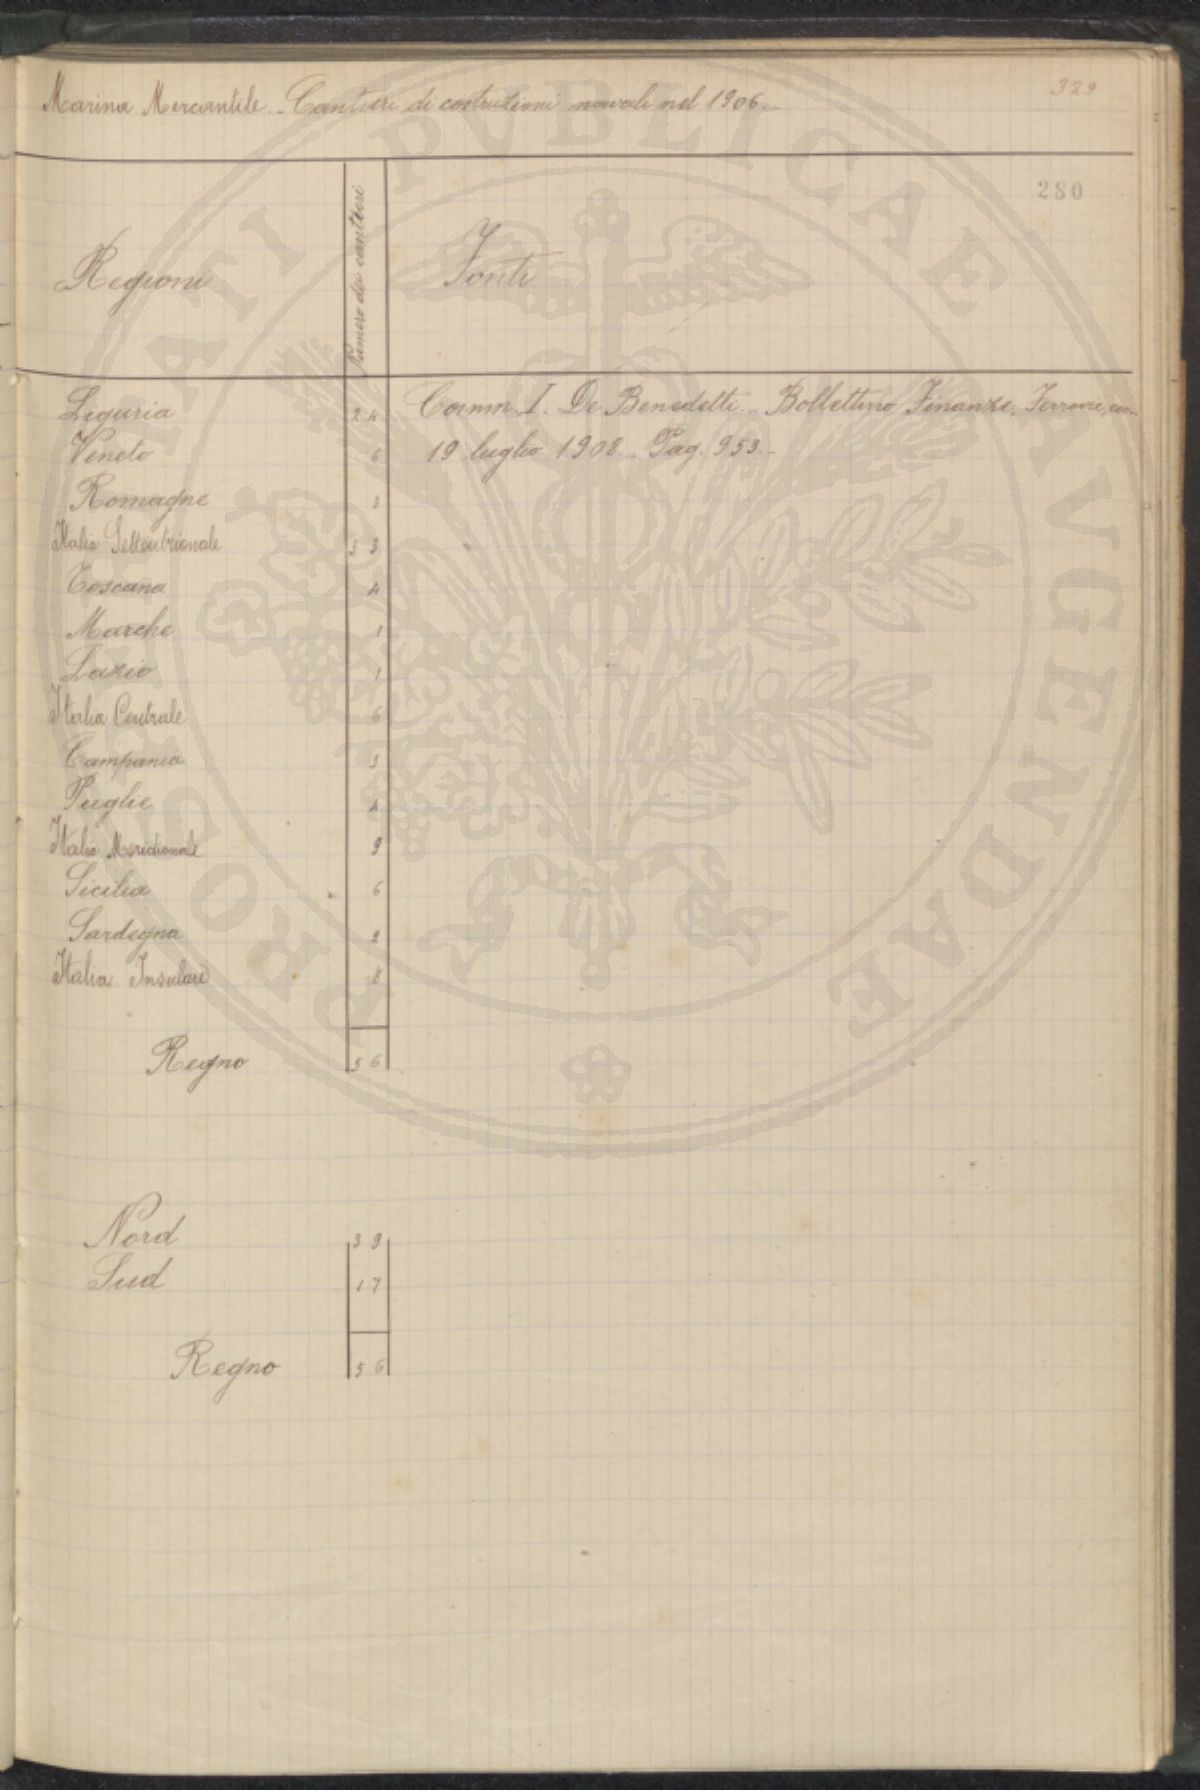 329
Marina Mercantile - Cantieri di costruzioni navali nel 1906.-
280
Regioni
Numero dei cantieri
Fonti
Liguria 24 Comm. I. De Benedetti - Bollettino Finanze, Ferrovie, ecc.
Veneto 6 19 luglio 1908. Pag. 953.-
Romagne 3
Italia Settentrionale 33
Toscana 4
Marche 1
Lazio 1
Italia Centrale 6
Campania 5
Puglie 4
Italia Meridionale 9
Sicilia 6
Sardegna 2
Italia Insulare 8
Regno 56
Nord 39
Sud 17
Regno 56
PROSPERITATI PUBLICAE AVGENDAE